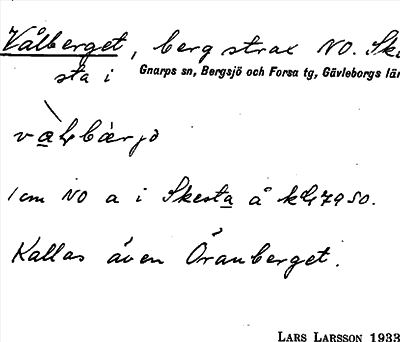 Vålberget, berg strax NO. Ske
sta i Gnarps sn, Bergsjö och Forsa tg, Gävleborgs län
1 cm NO a i Skesta å
Kallas även Öranberget.
LARS LARSSON 1933